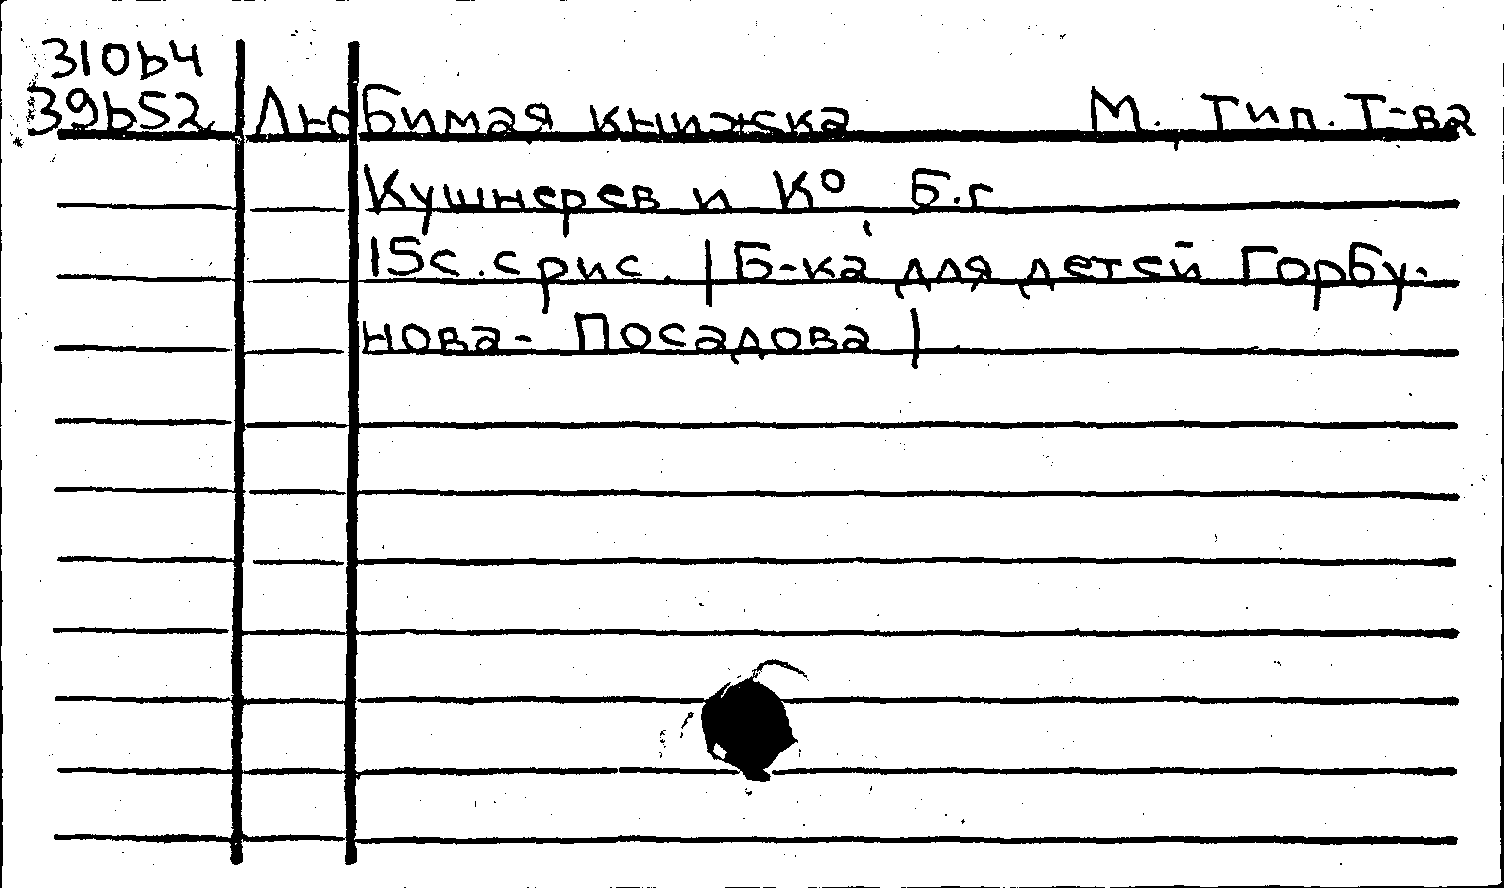 310ь4
39ь52 Любимая книжка М. Тип. Т-ва
Кушнерев и Ко, Б.г
15с. с рис. | Б-ка для детей Горбу-
нова- Посадова |